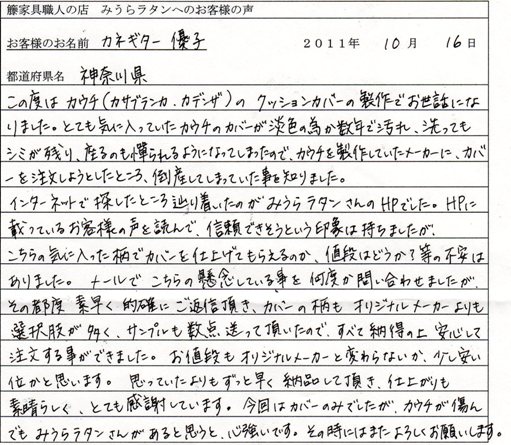 籐家具職人の店　みうらラタンへのお客様の声
お客様のお名前　カネギター 優子　　2011年　10月　16日
都道府県名　神奈川県
この度はカウチ(カサブランカ・カデンザ)の クッションカバーの製作でお世話にな
りました。とても気に入っていたカウチのカバーが淡色の為か数年で汚れ、洗っても
シミが残り、座るのも憚られるようになってしまったので、カウチを製作していたメーカーに、カバ
ーを注文しようとしたところ、倒産してしまっていた事を知りました。
インターネットで探したところ辿り着いたのがみうらラタンさんのHPでした。HPに
載っているお客様の声を読んで、信頼できそうという印象は持ちましたが、
こちらの気に入った柄でカバーを仕上げてもらえるのか、値段はどうか?等の不安は
ありました。メールでこちらの懸念している事を何度か問い合わせましたが、
その都度 素早く的確にご返信頂き、カバーの柄もオリジナルメーカーよりも
選択肢が多く、サンプルも数点送って頂いたので、すべて納得の上 安心して
注文する事ができました。お値段もオリジナルメーカーと変わらないか、少し安い
位かと思います。思っていたよりもずっと早く納品して頂き、仕上がりも
素晴らしく、とても感謝しています。今回はカバーのみでしたが、カウチが傷ん
でも みうらラタンさんがあると思うと、心強いです。その時にはまたよろしくお願いします。